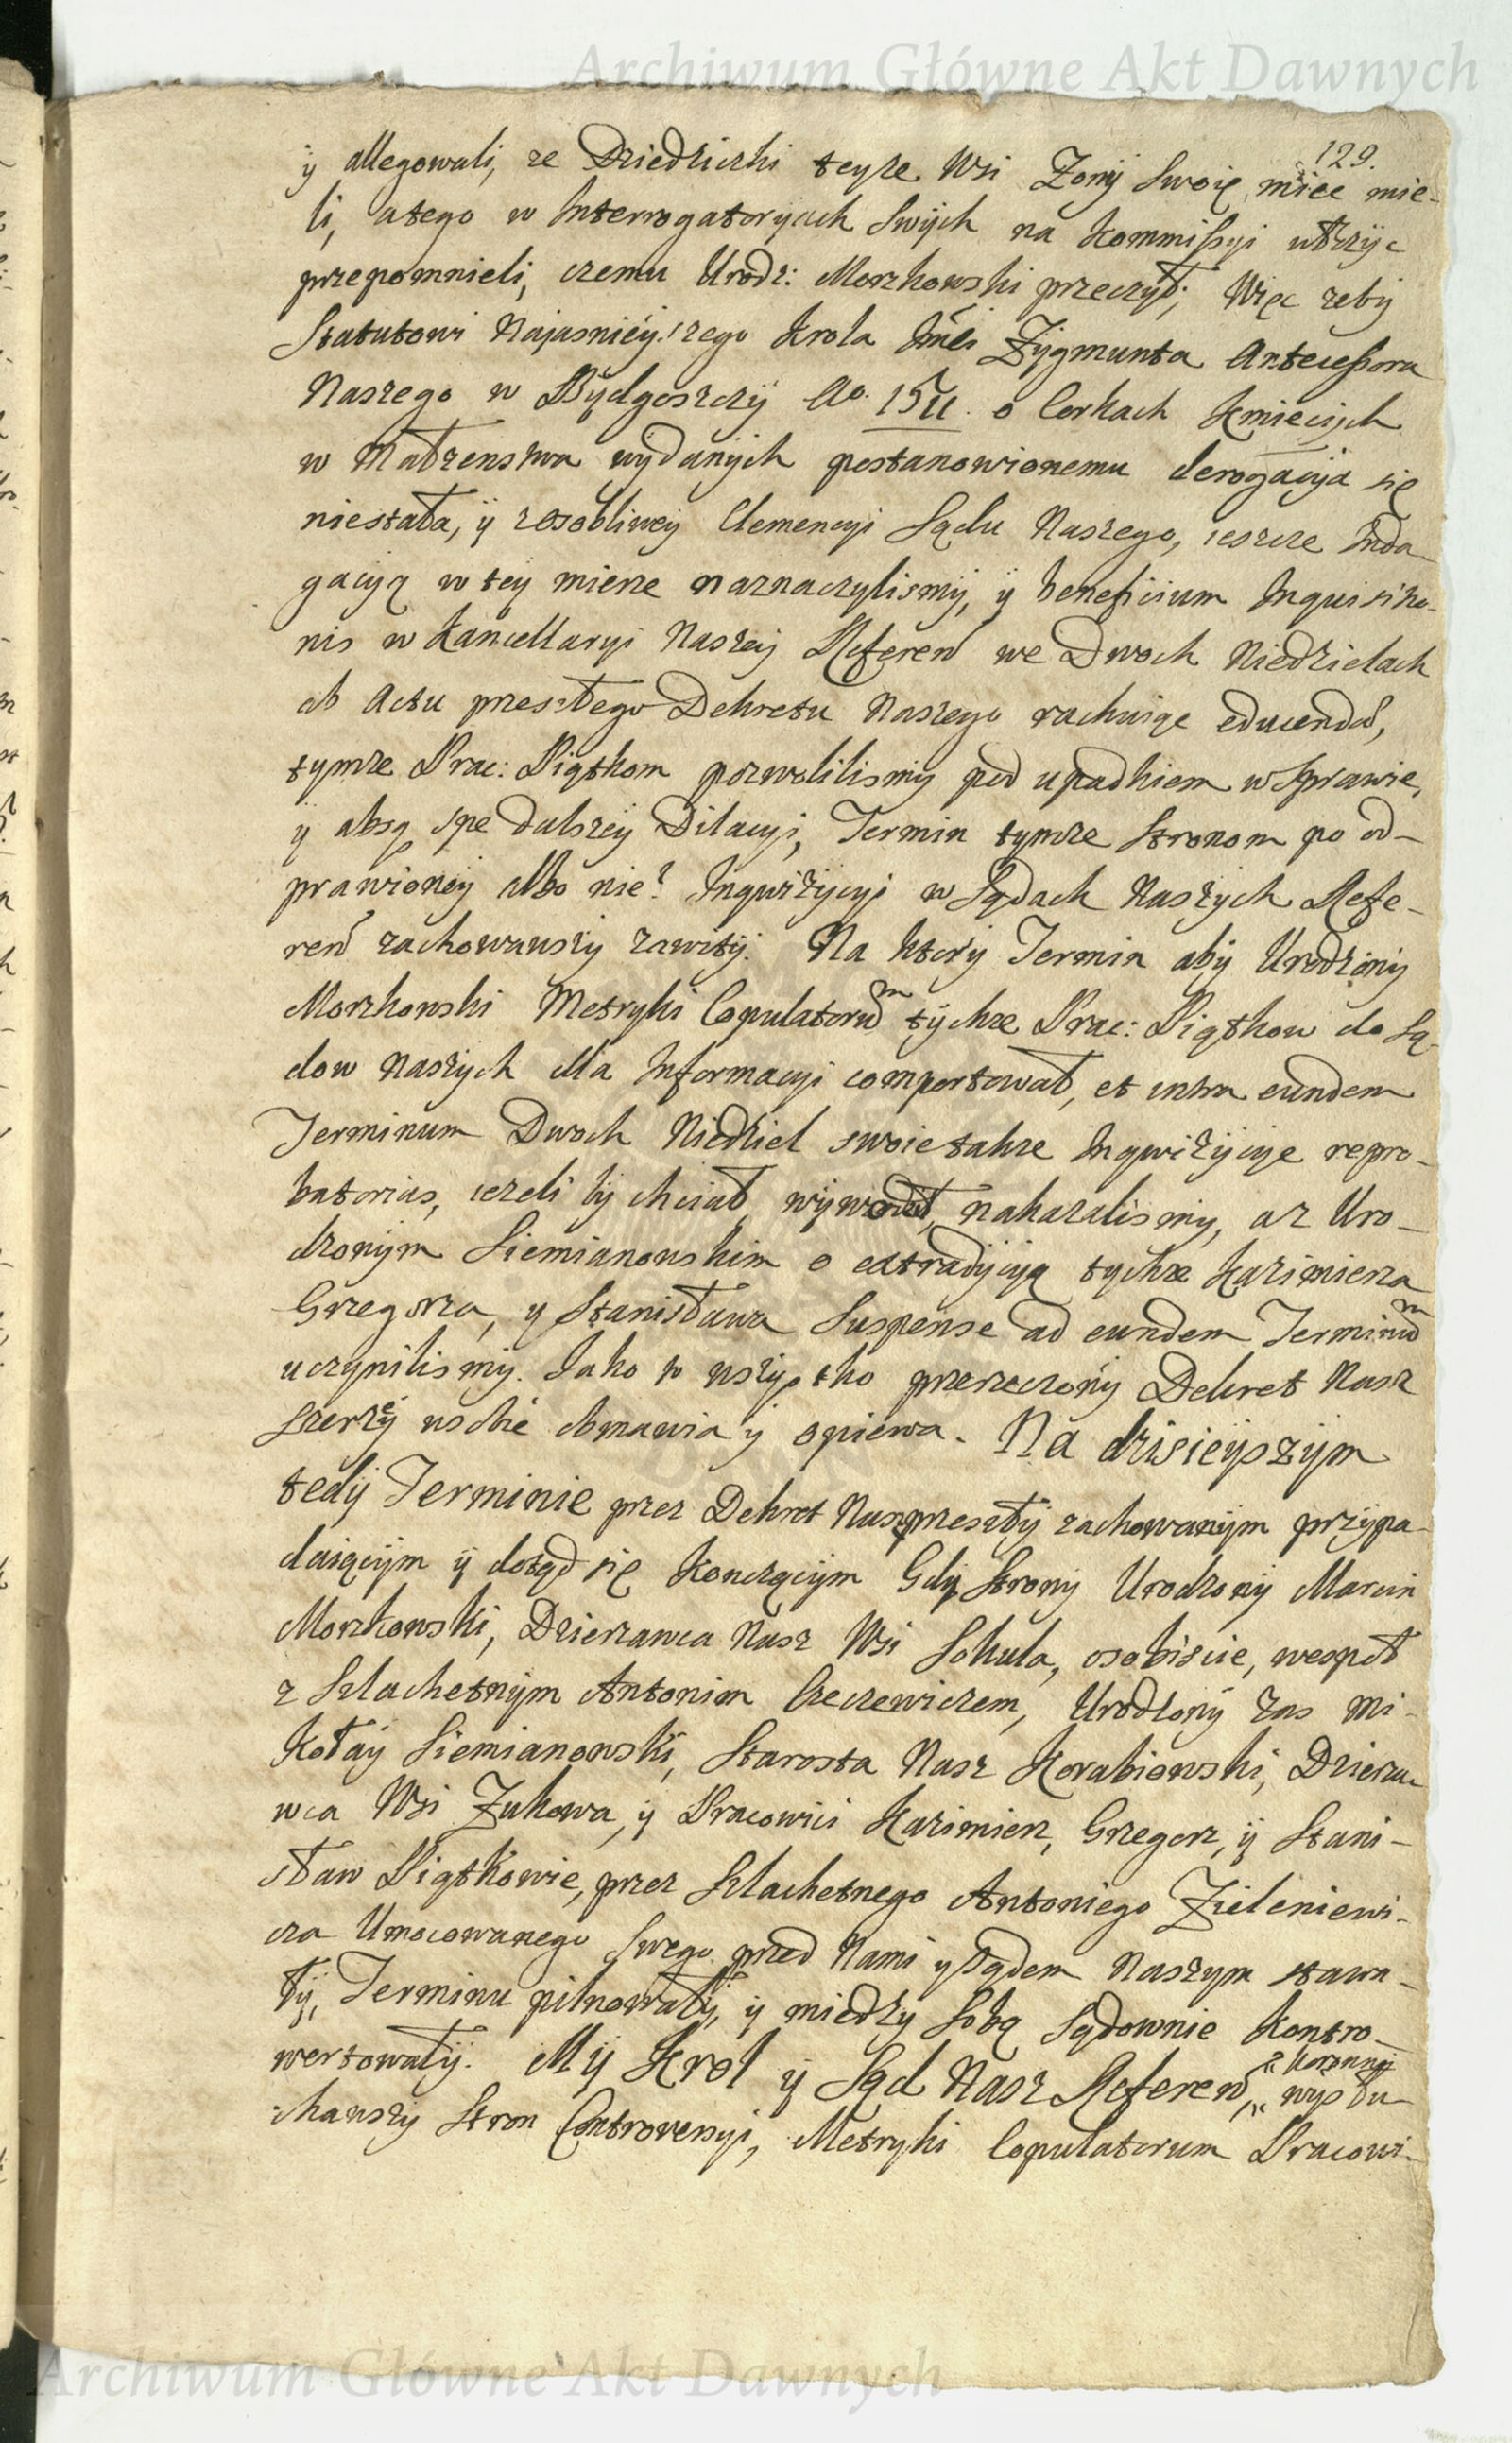 Archiwum Główne Akt Dawnych
129.
ÿ allegowali, ze Dziedziczki teyze Wsi Zony Swoie miec mie-
li, atego w Interrogatoryach Swÿch na Kommissyi użÿc
przepomnieli, czemu Urodz: Morzkowski przeczył; Więc zebÿ
Statutowi Najasnieÿszego Krola Jmci Zygmunta Antecessora
Naszego w Bydgoszczÿ Ao. 1511. o Corkach Kmiecÿch
w Małzenstwa wÿdanÿch postanowionemu derogacÿa się
niestała, ÿ zosobliweÿ Clemencyi Sądu Naszego, ieszcze Inda-
gacÿą w teÿ mierze naznaczylismÿ, ÿ beneficium Inquisitio-
nis w Kancellaryi Naszeÿ Referen we Dwoch Niedzielach
ab Actu przeszłego Dekretu Naszego rachuiąc educend,
tymze Prac: Piątkom pozwolilismÿ pod upadkiem w Sprawie,
ÿ absq spe dalszeÿ Dilacyi, Termin tymze Stronom po od-
prawioneÿ albo nie? Inquizÿcyi w Sądach Naszÿch Refe-
ren zachowawszÿ zawitÿ. Na ktorÿ Termin abÿ Urodzonÿ
Morzkowski Metryki Copulatorum tÿchze Prac: Piątkow do Są-
dow Naszÿch dla Informacyi comportował, et intra eundem
Terminum Dwoch Niedziel swoie takze Inqwizÿcye repro-
batorias, iezeli bÿ chciał, wÿwodił, nakazalismÿ, az Uro-
dzonÿm Siemianowskim o extradÿcyą tychze Kazimierza
Grzegorza, y Stanisława Suspense ad eundem Terminum
uczynilismÿ. Iako to wszystko przerzeczonÿ Dekret Nasz
szerzeÿ wsobie obmawia ÿ opiewa. Na dzisieÿszÿm
tedÿ Terminie przez Dekret Nasz przeszłÿ zachowanÿm przÿpa-
daiącÿm ÿ dotąd się konczącÿm Gdy Stronÿ Urodzonÿ Marcin
Morzkowski, Dzierzawca Nasz Wsi Sokula, osobiscie, wespoł
z Szlachetnÿm Antonim Czeczewiczem, Urodzonÿ zas Mi-
kołaÿ Siemianowski, Starosta Nasz Korabiowski, Dzierza-
wca Wsi Zukowa, ÿ Pracowici Kazimierz, Grzegorz, ÿ Stani-
sław Piątkowie, przez Szlachetnego Antoniego Zieleniewi-
cza Umocowanego Swego przed Nami y Sądem Naszym stawa-
łÿ, Terminu pilnowałÿ, ÿ miedzy Sobą Sądownie Kontro-
wertowałÿ. Mÿ Krol ÿ Sąd Nasz Referen, „ wÿsłu-
z Koronnÿ
chawszÿ Stron Controversyi, Metryki Copulatorum Pracowi-
Archiwum Główne Akt Dawnych